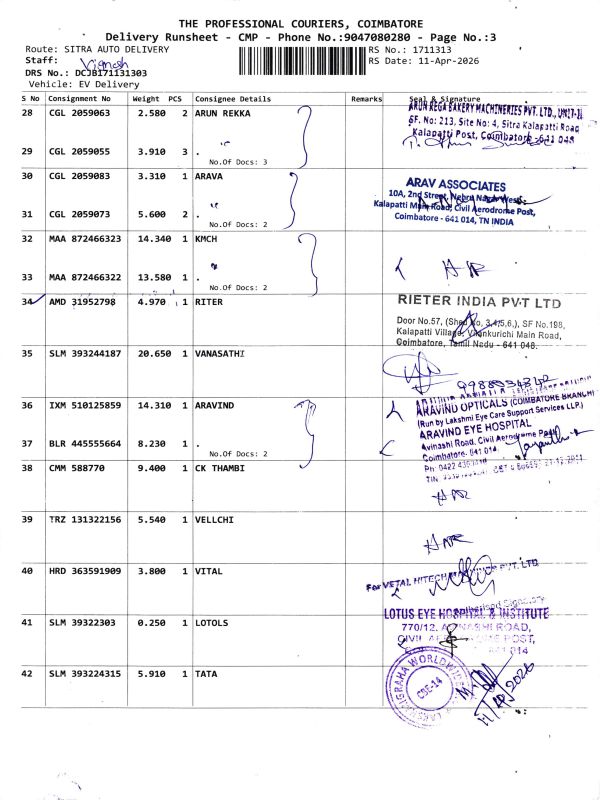 THE PROFESSIONAL COURIERS, COIMBATORE
Delivery Runsheet - CMP - Phone No.:9047080280 - Page No.:3
Route: SITRA AUTO DELIVERY
RS No.: 1711313
Staff: Vignesh
RS Date: 11-Apr-2026
DRS No.: DCJB171131303
Vehicle: EV Delivery
S No Consignment No Weight PCS Consignee Details Remarks Seal & Signature
28 CGL 2059063 2.580 2 ARUN REKKA
ARUN REGA BAKERY MACHINERIES PVT. LTD., UNIT-II
SF. No: 213, Site No: 4, Sitra Kalapatti Road
Kalapatti Post, Coimbatore -641 048
29 CGL 2059055 3.910 3 .
No.Of Docs: 3
30 CGL 2059083 3.310 1 ARAVA
ARAV ASSOCIATES
10A, 2nd Street, Nehru Nagar West,
Kalapatti Main Road, Civil Aerodrome Post,
Coimbatore - 641 014, TN INDIA
31 CGL 2059073 5.600 2 .
No.Of Docs: 2
32 MAA 872466323 14.340 1 KMCH
33 MAA 872466322 13.580 1 .
No.Of Docs: 2
34 AMD 31952798 4.970 1 RITER
RIETER INDIA PVT LTD
Door No.57, (Shed No, 3,4/5,6,), SF No.198,
Kalapatti Village, Vilankurichi Main Road,
Coimbatore, Tamil Nadu - 641 048.
35 SLM 393244187 20.650 1 VANASATHI
36 IXM 510125859 14.310 1 ARAVIND
ARAVIND OPTICALS (COIMBATORE BRANCH)
(Run by Lakshmi Eye Care Support Services LLP.)
ARAVIND EYE HOSPITAL
Avinashi Road, Civil Aerodrome Post
Coimbatore- 641 014
37 BLR 445555664 8.230 1 .
No.Of Docs: 2
38 CMM 588770 9.400 1 CK THAMBI
39 TRZ 131322156 5.540 1 VELLCHI
40 HRD 363591909 3.800 1 VITAL
For VETAL HITECH PVT. LTD
Authorised Signatory
41 SLM 39322303 0.250 1 LOTOLS
LOTUS EYE HOSPITAL & INSTITUTE
770/12, AVINASHI ROAD,
CIVIL AERODROME POST,
42 SLM 393224315 5.910 1 TATA
CBE-14